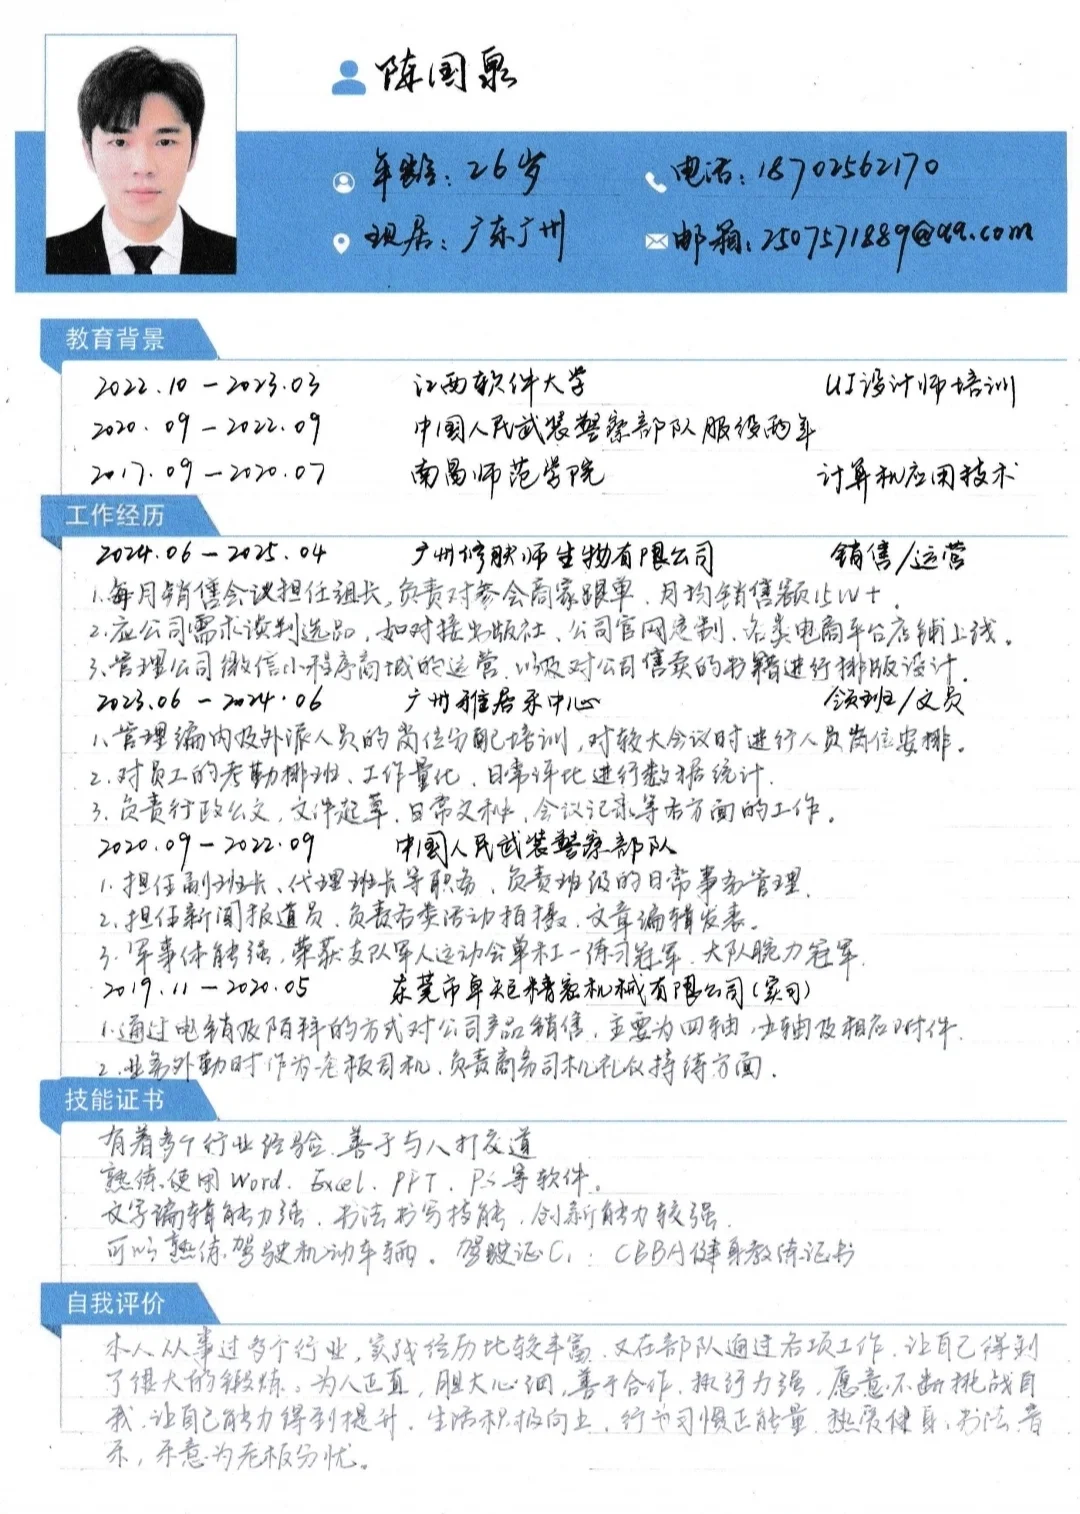 陈国泉
年龄：26岁
电话：18702562170
现居：广东广州
邮箱：2507571889@qq.com
教育背景
2022.10－2023.03 江西软件大学 UI设计师培训
2020.09－2022.09 中国人民武装警察部队服役两年
2017.09－2020.07 南昌师范学院 计算机应用技术
工作经历
2024.06－2025.04 广州修肤师生物有限公司 销售/运营
1.每月销售会议担任组长，负责对参会商家跟单，月均销售额15W+。
2.应公司需求谈判选品，如对接出版社、公司官网定制、各类电商平台店铺上线。
3.管理公司微信小程序商城的运营，以及对公司售卖的书籍进行排版设计.
2023.06－2024.06 广州雅居乐中心 领班/文员
1.管理编内及外派人员的岗位分配培训，对较大会议时进行人员岗位安排。
2.对员工的考勤排班、工作量化、日常评比进行数据统计.
3.负责行政公文，文件起草，日常文秘，会议记录等各方面的工作。
2020.09－2022.09 中国人民武装警察部队
1.担任副班长、代理班长等职务，负责班级的日常事务管理.
2.担任新闻报道员，负责各类活动拍摄、文章编辑发表。
3.军事体能强，荣获支队军人运动会单杠一练习冠军、大队腕力冠军
2019.11－2020.05 东莞市卓矩精密机械有限公司(实习)
1.通过电销及陌拜的方式对公司产品销售，主要为四轴，五轴及相应附件.
2.业务外勤时作为老板司机，负责商务司机礼仪接待方面.
技能证书
有着多个行业经验，善于与人打交道
熟练使用Word、Excel、PPT、PS等软件。
文字编辑能力强，书法书写技能，创新能力较强.
可以熟练驾驶机动车辆。驾驶证C1；CBBA健身教练证书
自我评价
本人从事过多个行业，实践经历比较丰富，又在部队通过各项工作，让自己得到
了很大的锻炼。为人正直，胆大心细，善于合作，执行力强，愿意不断挑战自
我，让自己能力得到提升，生活积极向上，行为习惯正能量，热爱健身、书法、音
乐，乐意为老板分忧。